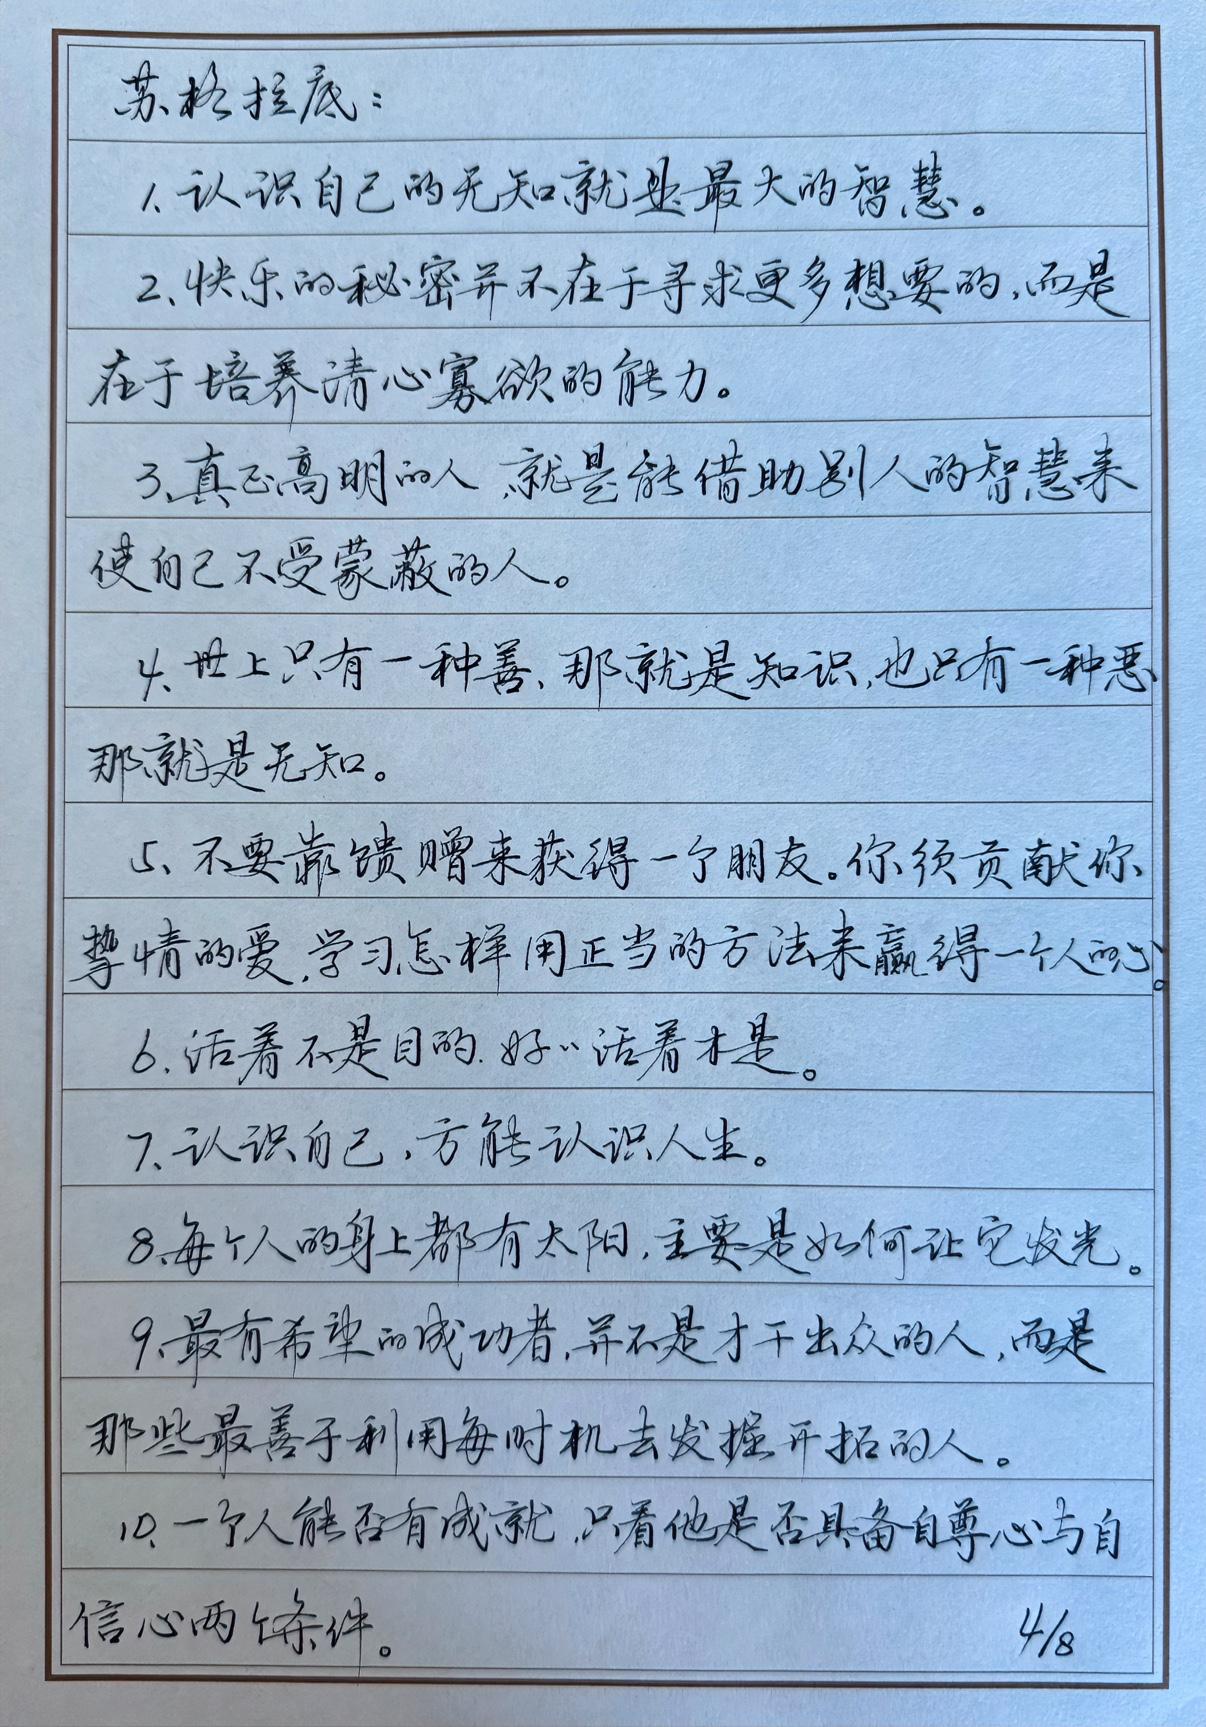 苏格拉底：
1、认识自己的无知就是最大的智慧。
2、快乐的秘密并不在于寻求更多想要的，而是
在于培养清心寡欲的能力。
3、真正高明的人，就是能借助别人的智慧来
使自己不受蒙蔽的人。
4、世上只有一种善、那就是知识，也只有一种恶
那就是无知。
5、不要靠馈赠来获得一个朋友。你须贡献你
挚情的爱，学习怎样用正当的方法来赢得一个人的心。
6、活着不是目的，好好活着才是。
7、认识自己，方能认识人生。
8、每个人的身上都有太阳，主要是如何让它发光。
9、最有希望的成功者，并不是才干出众的人，而是
那些最善于利用每时机去发掘开拓的人。
10、一个人能否有成就，只看他是否具备自尊心与自
信心两个条件。
4/8